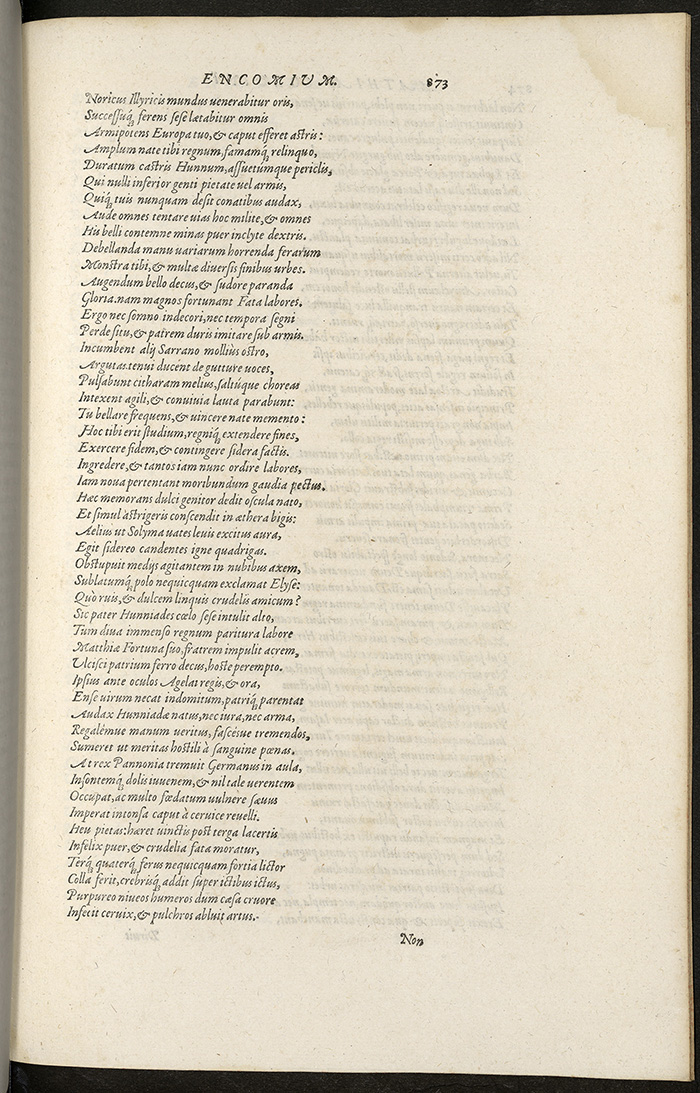 ENCOMIUM. 873
Noricus Illyricis mundus uenerabitur oris,
Successuq́; ferens sese lætabitur omnis
Armipotens Europa tuo, & caput efferet astris:
Amplum nate tibi regnum, famamq́; relinquo,
Duratum castris Hunnum, assuetumque periclis,
Qui nulli inferior genti pietate uel armis,
Quiq́; tuis nunquam desit conatibus audax,
Aude omnes tentare uias hoc milite, & omnes
His belli contemne minas puer inclyte dextris.
Debellanda manu uariarum horrenda ferarum
Monstra tibi, & multæ diuersis finibus urbes.
Augendum bello decus, & sudore paranda
Gloria. nam magnos fortunant Fata labores.
Ergo nec somno indecori, nec tempora segni
Perde situ, & patrem duris imitare sub armis.
Incumbent alij Sarrano mollius ostro,
Argutas tenui ducent de gutture uoces,
Pulsabunt citharam melius, saltúque choreas
Intexent agili, & conuiuia lauta parabunt:
Tu bellare frequens, & uincere nate memento:
Hoc tibi erit studium, regniq́; extendere fines,
Exercere fidem, & contingere sidera factis.
Ingredere, & tantos iam nunc ordire labores,
Iam noua pertentant moribundum gaudia pectus.
Hæc memorans dulci genitor dedit oscula nato,
Et simul astrigeris conscendit in æthera bigis:
Aelius ut Solyma uates leuis excitus aura,
Egit sidereo candentes igne quadrigas.
Obstupuit medijs agitantem in nubibus axem,
Sublatumq́; polo nequicquam exclamat Elyse:
Quò ruis, & dulcem linquis crudelis amicum?
Sic pater Hunniades cœlo sese intulit alto,
Tum diua immenso regnum paritura labore
Matthiæ Fortuna suo, fratrem impulit acrem,
Vlcisci patrium ferro decus, hoste perempto.
Ipsius ante oculos Agelat regis, & ora,
Ense uirum necat indomitum, patriq́; parentat
Audax Hunniada natus, nec iura, nec arma,
Regalémue manum ueritus, fascésue tremendos,
Sumeret ut meritas hostili à sanguine pœnas.
At rex Pannonia tremuit Germanus in aula,
Insontemq́; dolis iuuenem, & nil tale uerentem
Occupat, ac multo fœdatum uulnere sæuus
Imperat intonsa caput à ceruice reuelli.
Heu pietas: hæret uinctis post terga lacertis
Infelix puer, & crudelia fata moratur,
Terq́; quaterq́; ferus nequicquam fortia lictor
Colla ferit, crebrisq́; addit super ictibus ictus,
Purpureo niueos humeros dum cæsa cruore
Infecit ceruix, & pulchros abluit artus.
Non